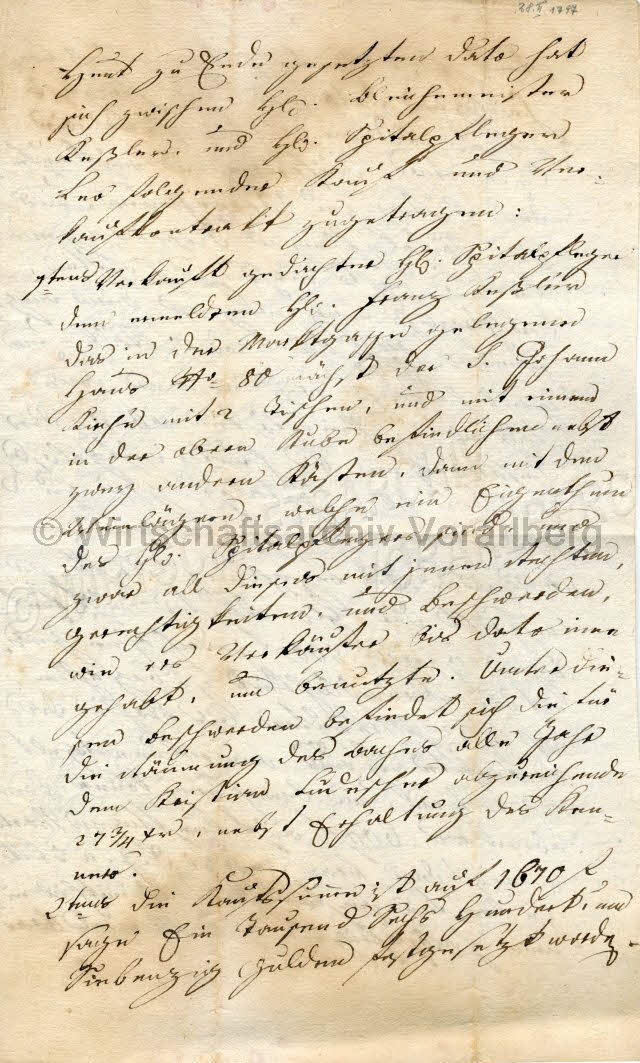 28.II 1797
Heut zu Ende gesetzten dato hat
sich zwischen H. Bleichemeister
Keßler, und H. Spitalpfleger
Leo folgender Kauf und Ver-
kaufkontrakt zugetragen:
1tens Verkauft gedachter H. Spitalpfleger
dem ermeldten H. Franz Keßler
das in der Marktgasse gelegene
Haus No 80 nächst der S. Johann
Kirche mit 2 Tischen, und mit einem
in der obern Stube befindlichen nebst
zwey andern Kästen, dann mit den
welche ein Eigenthum
des H. Spitalpflegers sind, und
zwar all dieses mit jenen Rechten,
gerechtigkeiten, und Beschwerden,
wie es Verkäufer bis dato inne
gehabt, und benutzte. Unter die-
sen Beschwerden befindet sich die für
die Räumung des Baches alle Jahr
dem Kristian Ludescher abzureichende
27 3/4 xr, nebst Erhaltung des Ken-
ners.
2tens die Kaufssumme ist auf 1670 f
sage Ein Tausend Sechs Hundert, und
Siebenzig Gulden festgesetzt worden.
© Wirtschaftsarchiv Vorarlberg